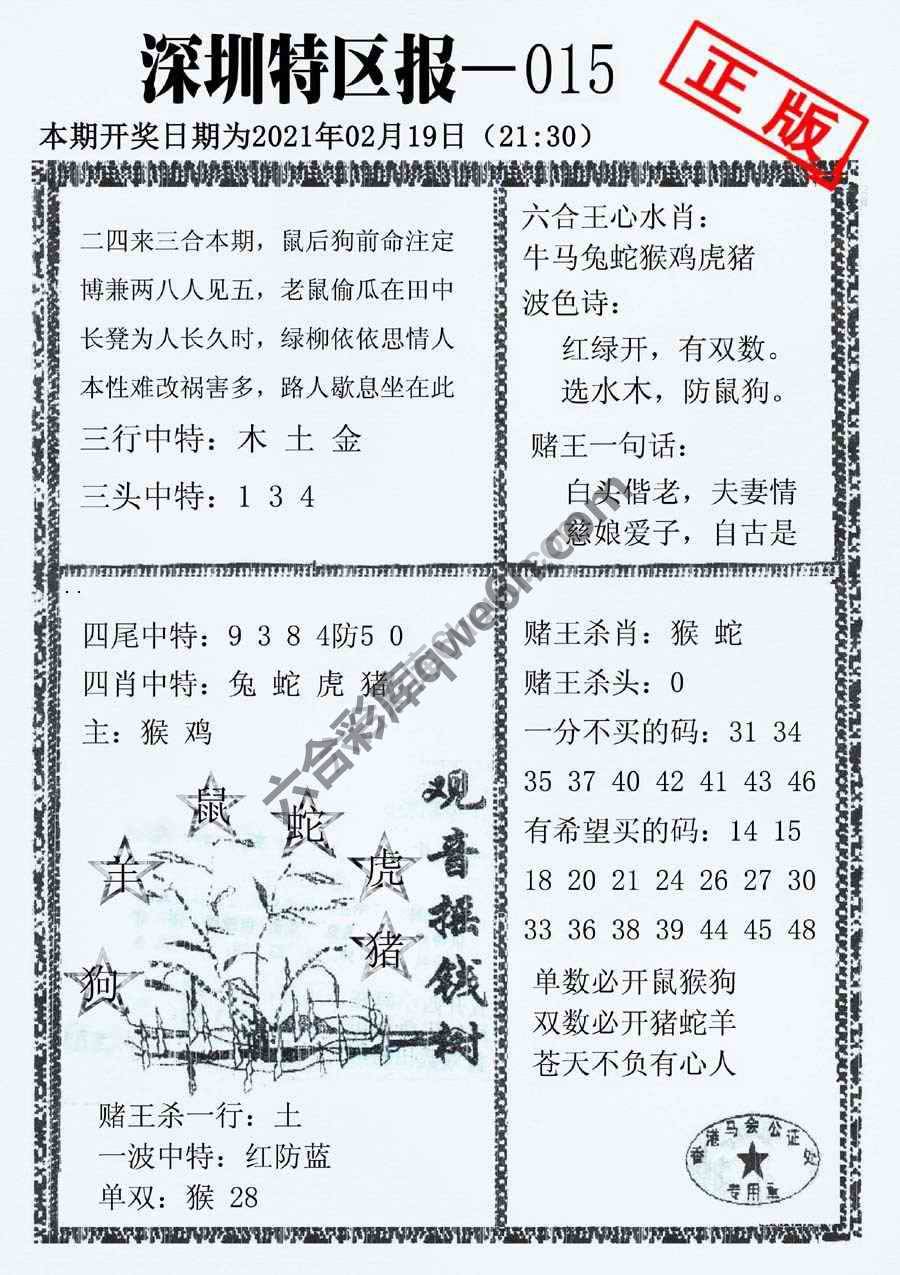 深圳特区报—015
正版
本期开奖日期为2021年02月19日（21:30）
二四来三合本期，鼠后狗前命注定
博兼两八人见五，老鼠偷瓜在田中
长凳为人长久时，绿柳依依思情人
本性难改祸害多，路人歇息坐在此
三行中特：木 土 金
三头中特：1 3 4
六合王心水肖：
牛马兔蛇猴鸡虎猪
波色诗：
红绿开，有双数。
选水木，防鼠狗。
赌王一句话：
白头偕老，夫妻情
慈娘爱子，自古是
四尾中特：9 3 8 4防5 0
四肖中特：兔 蛇 虎 猪
主：猴 鸡
鼠
蛇
羊
虎
猪
狗
观音摇钱树
赌王杀一行：土
一波中特：红防蓝
单双：猴 28
赌王杀肖：猴 蛇
赌王杀头：0
一分不买的码：31 34
35 37 40 42 41 43 46
有希望买的码：14 15
18 20 21 24 26 27 30
33 36 38 39 44 45 48
单数必开鼠猴狗
双数必开猪蛇羊
苍天不负有心人
香港马会公证处
专用章
六合彩库qwe6h.com